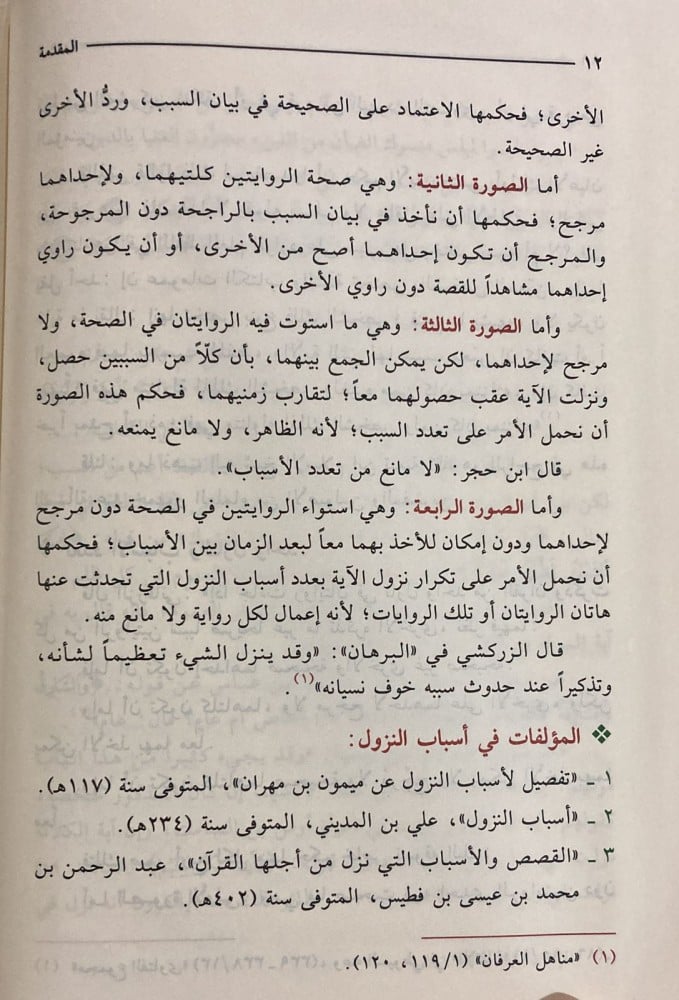 ١٢ المقدمة
الأخرى؛ فحكمها الاعتماد على الصحيحة في بيان السبب، وردُّ الأخرى
غير الصحيحة.
أما الصورة الثانية: وهي صحة الروايتين كلتيهما، ولإحداهما
مرجح؛ فحكمها أن نأخذ في بيان السبب بالراجحة دون المرجوحة،
والمرجح أن تكون إحداهما أصح من الأخرى، أو أن يكون راوي
إحداهما مشاهداً للقصة دون راوي الأخرى.
وأما الصورة الثالثة: وهي ما استوت فيه الروايتان في الصحة، ولا
مرجح لإحداهما، لكن يمكن الجمع بينهما، بأن كلّاً من السببين حصل،
ونزلت الآية عقب حصولهما معاً؛ لتقارب زمنيهما، فحكم هذه الصورة
أن نحمل الأمر على تعدد السبب؛ لأنه الظاهر، ولا مانع يمنعه.
قال ابن حجر: «لا مانع من تعدد الأسباب».
وأما الصورة الرابعة: وهي استواء الروايتين في الصحة دون مرجح
لإحداهما ودون إمكان للأخذ بهما معاً لبعد الزمان بين الأسباب؛ فحكمها
أن نحمل الأمر على تكرار نزول الآية بعدد أسباب النزول التي تحدثت عنها
هاتان الروايتان أو تلك الروايات؛ لأنه إعمال لكل رواية ولا مانع منه.
قال الزركشي في «البرهان»: «وقد ينزل الشيء تعظيماً لشأنه،
وتذكيراً عند حدوث سببه خوف نسيانه»(١).
❖ المؤلفات في أسباب النزول:
١ ـ «تفصيل لأسباب النزول عن ميمون بن مهران»، المتوفى سنة (١١٧هـ).
٢ ـ «أسباب النزول»، علي بن المديني، المتوفى سنة (٢٣٤هـ).
٣ ـ «القصص والأسباب التي نزل من أجلها القرآن»، عبد الرحمن بن
محمد بن عيسى بن فطيس، المتوفى سنة (٤٠٢هـ).
(١) «مناهل العرفان» (١/١١٩، ١٢٠).